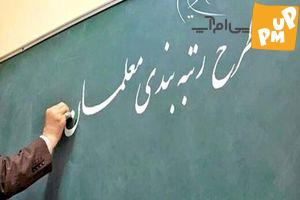 پی‌ام‌آپ
PM UP
طرح رتبه بندی معلمان